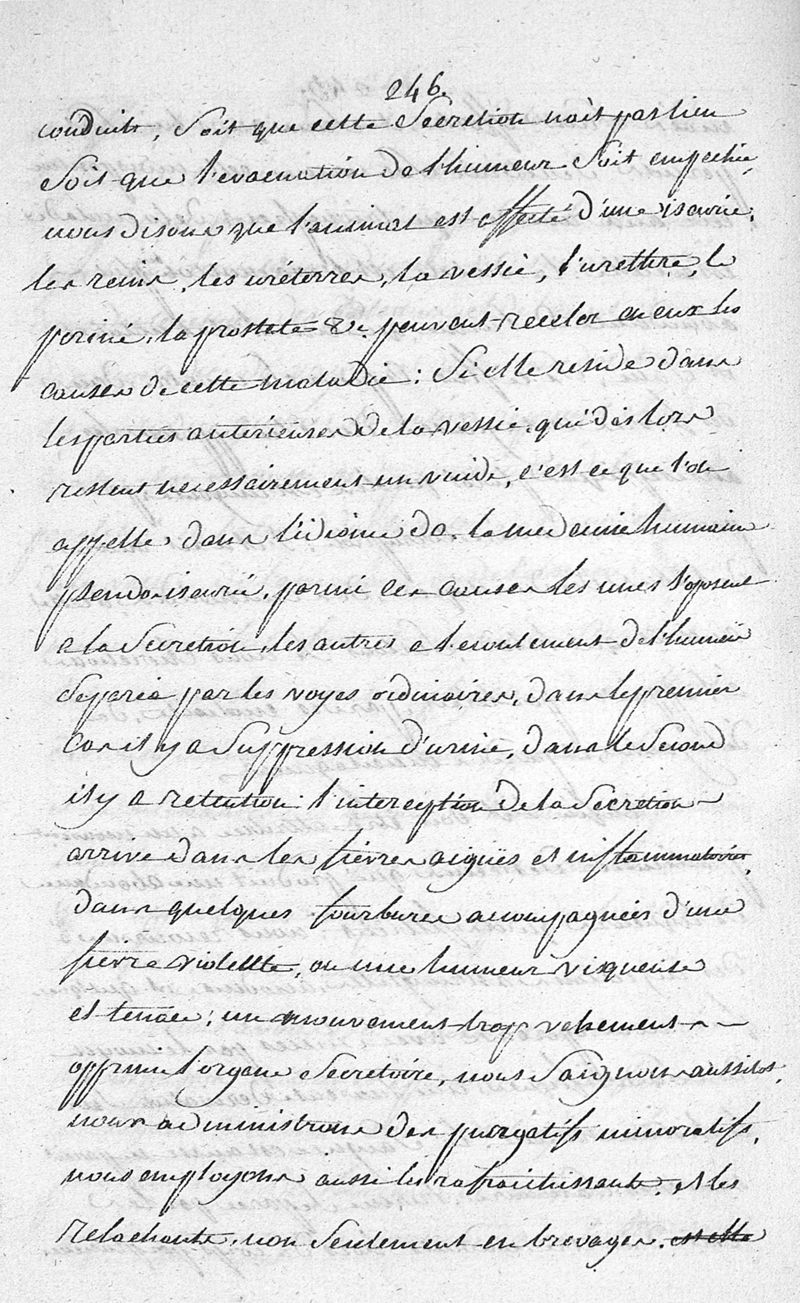 246.
conduits, Soit que cette Secretion n'ait pas lieu
Soit que l'evacuation de l'humeur Soit empechée
nous disons que l'animal est affecté d'une iscurie;
les reins, les uréterres, la vessie, l'urettre, le
periné, la prostate &c. peuvent receler en eux les
causes de cette maladie: Si elle reside dans
les parties anterieures de la vessie, qui dès lors
restent necessairement un vuide, c'est ce que l'on
appelle dans l'idiome de la medecine humaine
pseudo-iscurie, parmi ces causes les unes s'oposent
a la Secretion, les autres a l'ecoulement de l'humeur
Separée par les voyes ordinaires, dans le premier
Cas il y a Suppression d'urine, dans le Second
il y a retention: l'interception de la Secretion
arrive dans les fièvres aigües et inflammatoires,
dans quelques fourbures accompagnées d'une
fievre violette, ou une humeur visqueuse
et tenace; un mouvement trop vehement
opprime l'organe Secretoire, nous Saignons aussitot,
nous administrons des purgatifs minoratifs,
nous employons aussi les rafraichissants, et les
relachants, non Seulement en brevages, et elle